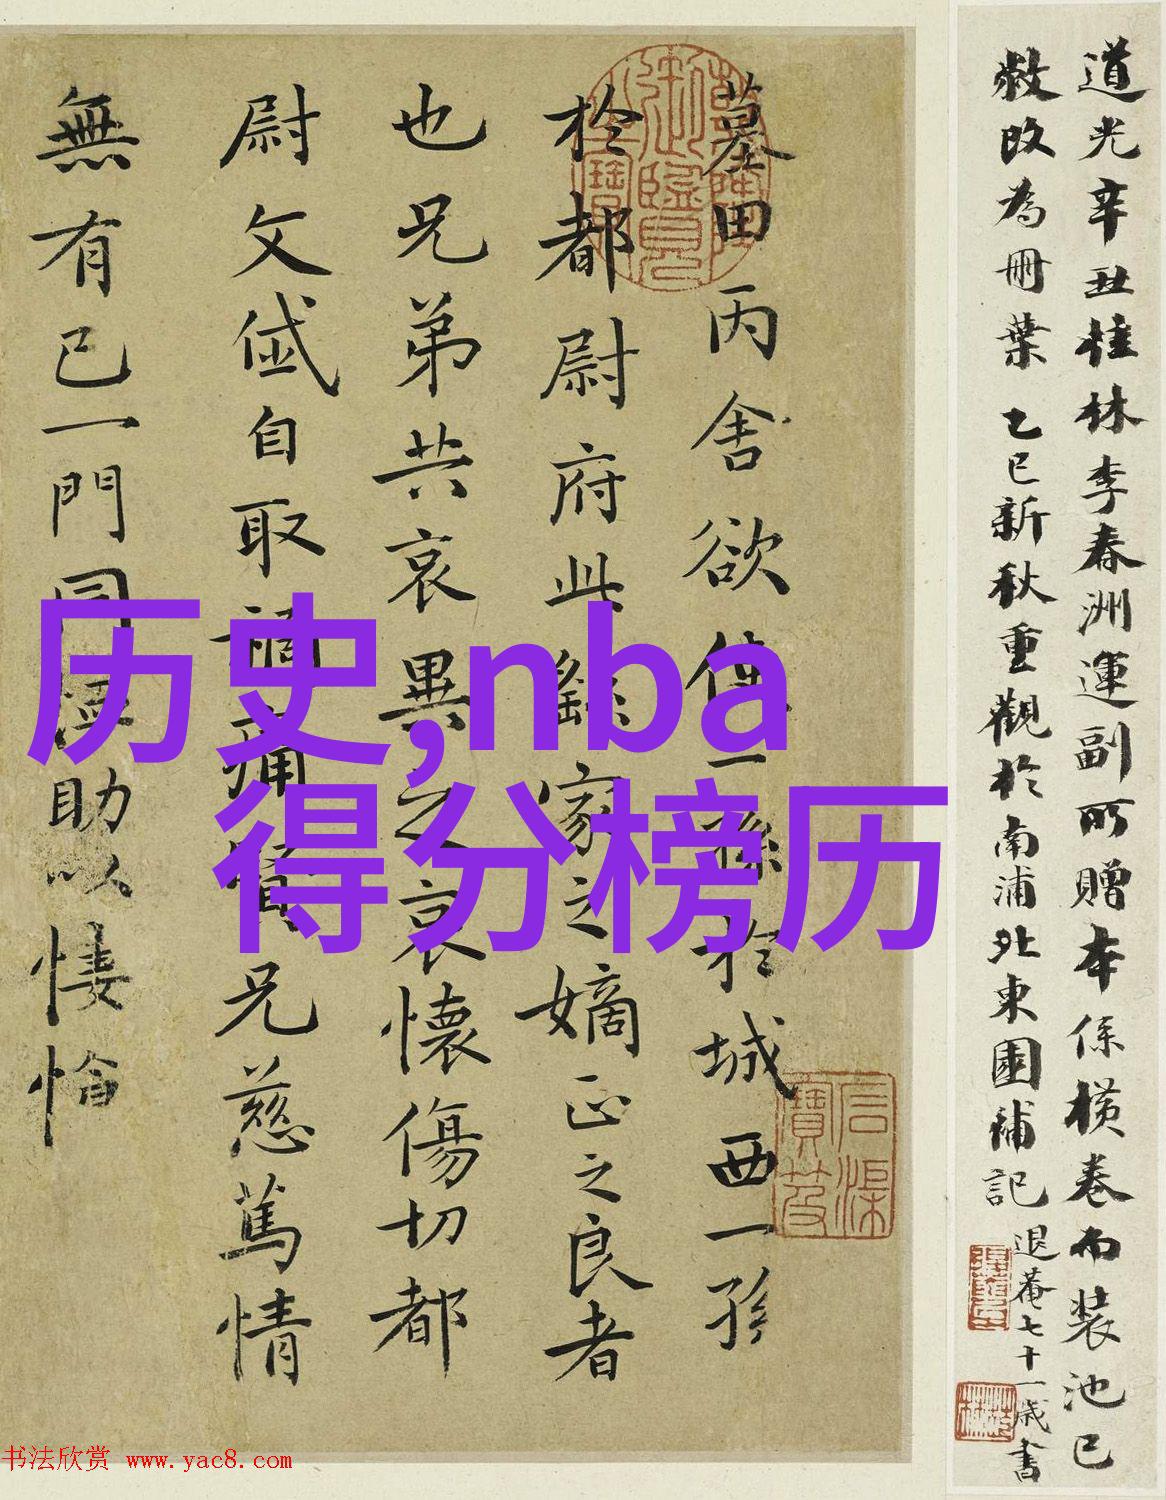 道光辛丑桂林李春洲運副所贈本係橫卷而裝池已
敝改為冊葉 乙巳新秋重觀於南浦北東園補記
退菴七十一歲書
墓田丙舍欲使一孫於城西一孫
於都尉府此繇家之嫡正之良者
也兄弟共哀異之哀懷傷切都
尉文岱自取禍痛賢兄慈篤情
無有已一門同恤助以悽愴
历史,nba
得分榜历
书法欣赏 www.yac8.com